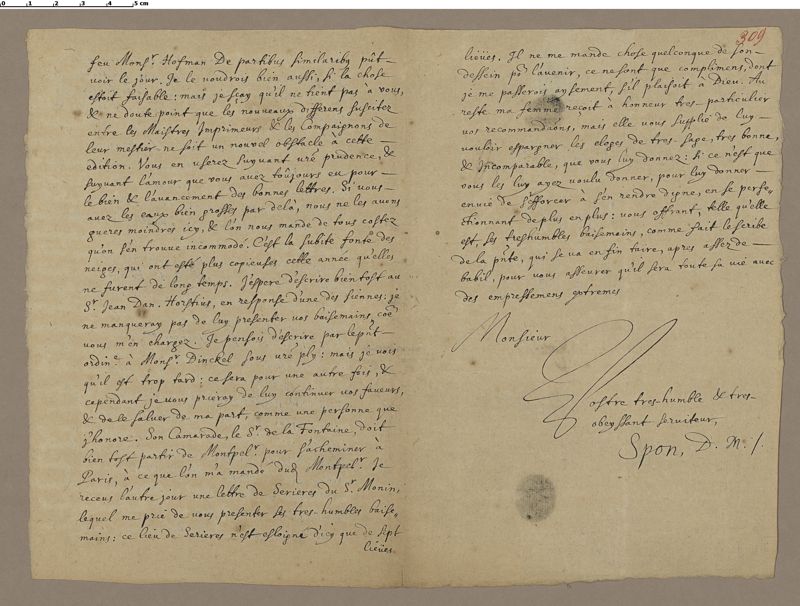 feu Monsr. Hofman De partibus similaribq pût
voir le jour. Je le voudrois bien aussi, si la chose
estoit faisable: mais je sçay qu'il ne tient pas a vous,
& ne doute point que les nouveaux differens suscitez
entre les Maistres Imprimeurs & les Compaignons de
leur mestier ne soit un nouvel obstacle à cette
edition. Vous en userez suyvant vre prudence, &
suyvant l'amour que vous avez toûjours eu pour
le bien & l'avancement des bonnes lettres. Si vous
avez les eaux bien grosses par delà, nous ne les avons
gueres moindres icy, & l'on nous mande de tous costez
qu'on s'en trouve incommodé. C'est la subite fonte des
neiges, qui ont esté plus copieuses cette année qu'elles
ne furent de long temps. J'espere d'escrire bien tost au
Sr. Jean Dan. Horstius, en response d'une des siennes: je
ne manqueray pas de luy presenter vos baisemains, coe
vous m'en chargez. Je pensois d'escrire par le pnt
ordine. à Monsr. Dinckel sous vre ply: mais je vois
qu'il est trop tard: ce sera pour une autre fois, &
cependant je vous prieray de luy continuer vos faveurs,
& de le saluer de ma part, comme une personne que
j'honore. Son Camarade, le Sr. de la Fontaine, doit
bien tost partir de Montpelr. pour s'acheminer à
Paris, à ce que l'on m'a mandé dud. Montpelr. Je
receus l'autre jour une lettre de Serieres du Sr. Monin,
lequel me prie de vous presenter ses tres-humbles baise-
mains: ce lieu de Serieres n'est esloigné d'icy que de sept
lieües.
309
lieües. Il ne me mande chose quelconque de son
dessein pr. l'avenir, ce ne sont que complimens, dont
je me passerois aysement, s'il plaisoit à Dieu. Au
reste ma femme reçoit à honneur tres-particulier
vos recommandations, mais elle vous supplie de luy
vouloir espargner les eloges de tres-sage, tres bonne,
& Incomparable, que vous luy donnez: si ce n'est que
vous les luy ayez voulu donner, pour luy donner
envie de s'efforcer à s'en rendre digne, en se perfe-
ctionnant de plus en plus: vous offrant, telle qu'elle
est, ses treshumbles baisemains, comme fait le scribe
de la pnte, qui se va en fin taire, apres assez de
babil, pour vous asseurer qu'il sera toute sa vie avec
des empressemens extremes
Monsieur
Vostre tres-humble & tres-
obeyssant serviteur,
Spon, D. M.